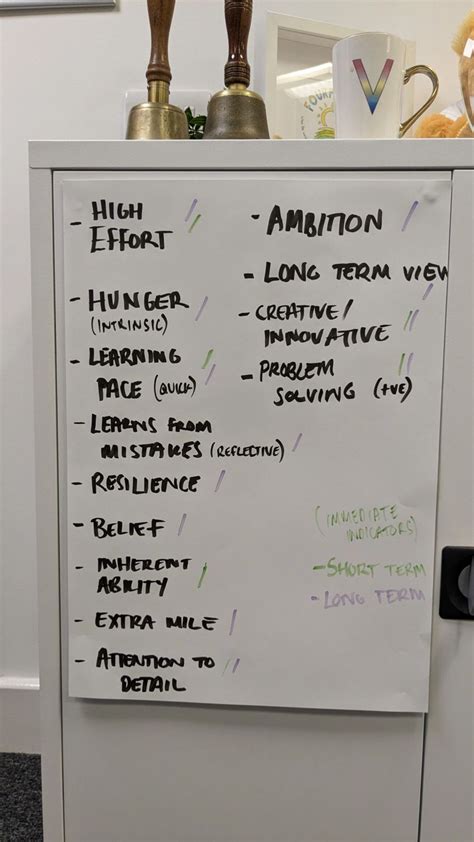 FOUR
V
- HIGH
EFFORT
- HUNGER
(INTRINSIC)
- LEARNING
PACE (QUICK)
- LEARNS FROM
MISTAKES (REFLECTIVE)
- RESILIENCE
- BELIEF
- INHERENT
ABILITY
- EXTRA MILE
- ATTENTION TO
DETAIL
- AMBITION
- LONG TERM VIEW
- CREATIVE/
INNOVATIVE
- PROBLEM
SOLVING (+VE)
(IMMEDIATE
INDICATORS)
- SHORT TERM
- LONG TERM